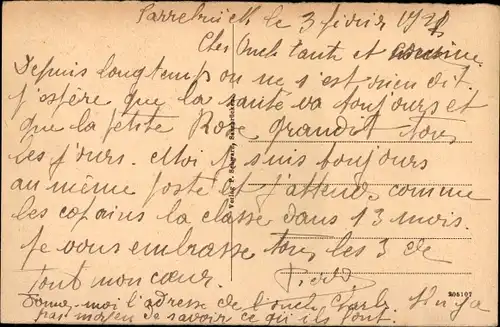 Sarrebrück le 3 février
Cher Oncle tante et cousine.
Depuis longtemps on ne s'est rien dit.
J'espère que la santé va toujours et
que la petite Rose grandit tous
les jours. Moi je suis toujours
au même poste et j'attend comme
les copains la classe dans 13 mois.
Je vous embrasse tous les 3 de
tout mon cœur.
Donne-moi l'adresse de l'oncle Il n'y a
pas moyen de savoir ce qu'ils font.
Verlag P. Schwarz, Saarbrücken
205107